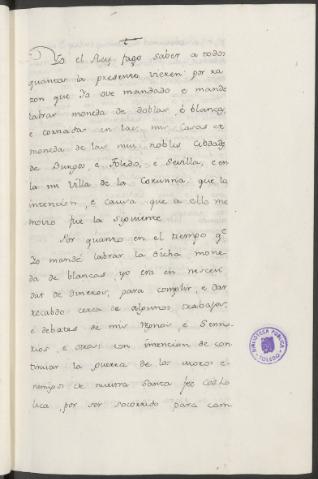 Yo el Rey fago saber a todos
quantos la presente vieren: por ra
zon que Yo ove mandado, e mande
labrar moneda de doblas, e blancas,
e cornados en las mis Casas de
moneda de las mui nobles Cibdades
de Burgos, e Toledo, e Sevilla, e en
la mi Villa de la Corunna, que la
intencion, e causa que a ello me
movio fue la siguiente
Por quanto en el tiempo q.e
Yo mandé labrar la dicha mone
da de blancas, yo era en neseci
dat de dineros, para complir, e dar
recabdo cerca de algunos trabajos,
e debates de mis Regnos, e Senno
rios, e otrosi con intencion de con
tinuar la guerra de los moros e
nemigos de nuestra Santa fee Catho
lica, por ser socorrido para com
BIBLIOTECA PUBLICA
TOLEDO